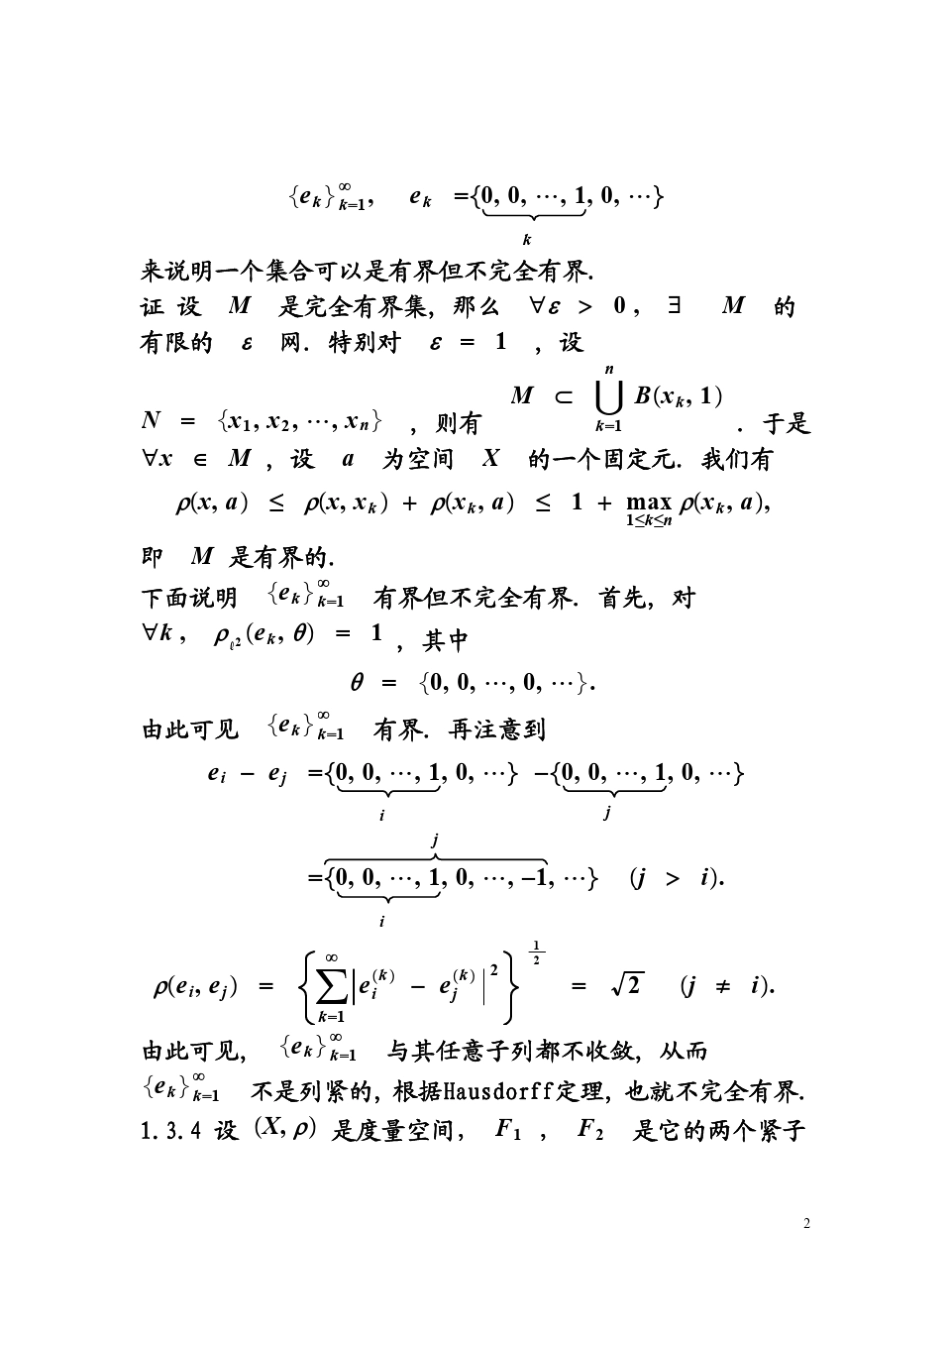 {e_k}_{k=1}^∞, e_k ={0, 0, ⋯, 1, 0, ⋯}
k
来说明一个集合可以是有界但不完全有界.
证 设 M 是完全有界集, 那么 ∀ε > 0 , ∃ M 的
有限的 ε 网. 特别对 ε = 1 , 设
N = {x_1, x_2, ⋯, x_n} , 则有 M ⊂ ⋃_{k=1}^n B(x_k, 1) . 于是
∀x ∈ M , 设 a 为空间 X 的一个固定元. 我们有
ρ(x, a) ≤ ρ(x, x_k) + ρ(x_k, a) ≤ 1 + max_{1≤k≤n} ρ(x_k, a),
即 M 是有界的.
下面说明 {e_k}_{k=1}^∞ 有界但不完全有界. 首先, 对
∀k , ρ_{ℓ^2}(e_k, θ) = 1 , 其中
θ = {0, 0, ⋯, 0, ⋯}.
由此可见 {e_k}_{k=1}^∞ 有界. 再注意到
e_i − e_j ={0, 0, ⋯, 1, 0, ⋯} −{0, 0, ⋯, 1, 0, ⋯}
i j
j
={0, 0, ⋯, 1, 0, ⋯, −1, ⋯} (j > i).
i
ρ(e_i, e_j) = {∑_{k=1}^∞ |e_i^{(k)} − e_j^{(k)}|^2}^{1/2} = √2 (j ≠ i).
由此可见, {e_k}_{k=1}^∞ 与其任意子列都不收敛, 从而
{e_k}_{k=1}^∞ 不是列紧的, 根据Hausdorff定理, 也就不完全有界.
1.3.4 设 (X, ρ) 是度量空间, F_1 , F_2 是它的两个紧子
2